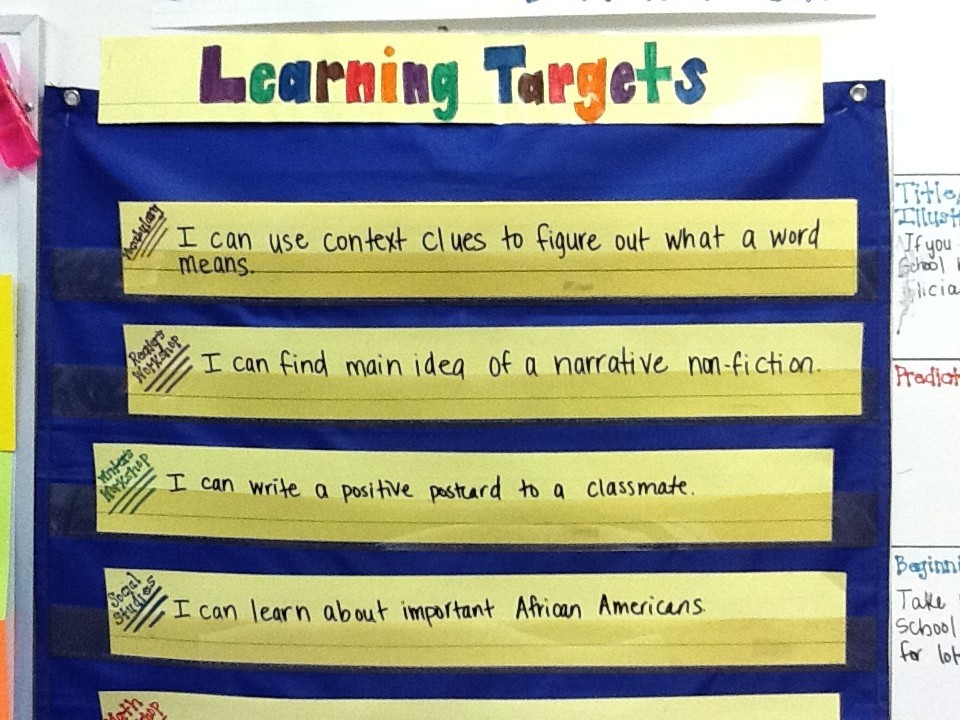 Learning Targets
Vocabulary
I can use context clues to figure out what a word
means.
Reader's
Workshop
I can find main idea of a narrative non-fiction.
Writer's
Workshop
I can write a positive postcard to a classmate.
Social
Studies
I can learn about important African Americans.
Math
Title/
Illust
If you
School
licia
Predict
Beginni
Take
School
for lot